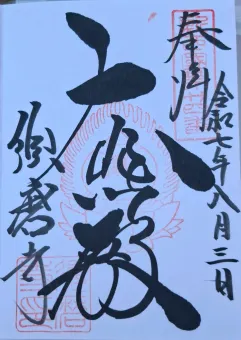 奉拝
令和七年八月三日
大悲殿
寺